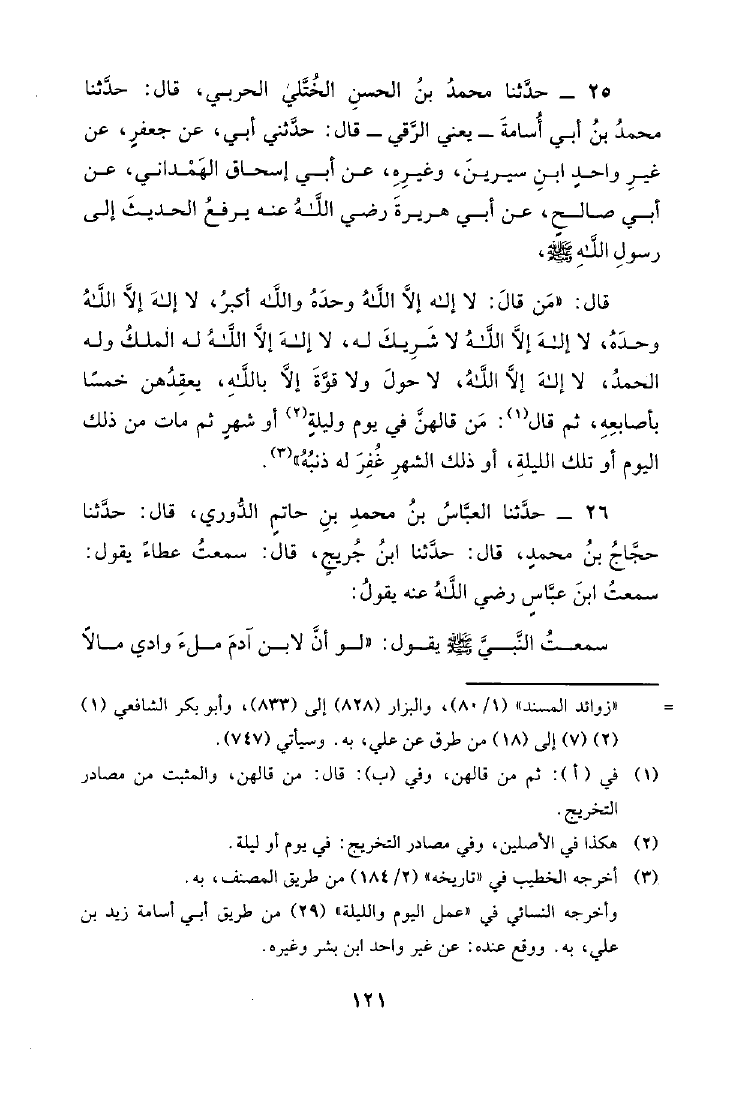 ٢٥ ــ حدَّثنا محمدُ بنُ الحسنِ الخُتَّلي الحربي، قال: حدَّثنا
محمدُ بنُ أبي أُسامةَ ــ يعني الرَّقي ــ قال: حدَّثني أبي، عن جعفرٍ، عن
غيرِ واحدٍ ابنِ سيرينَ، وغيرِه، عن أبي إسحاق الهَمْداني، عن
أبي صالحٍ، عن أبي هريرةَ رضي اللَّه عنه يرفعُ الحديثَ إلى
رسولِ اللَّهِ ﷺ،
قال: «مَن قالَ: لا إله إلاَّ اللَّهُ وحدَهُ واللَّه أكبرُ، لا إلهَ إلاَّ اللَّهُ
وحدَهُ، لا إلهَ إلاَّ اللَّهُ لا شَرِيكَ له، لا إلهَ إلاَّ اللَّهُ له الملكُ وله
الحمدُ، لا إلهَ إلاَّ اللَّهُ، لا حولَ ولا قوَّةَ إلاَّ باللَّهِ، يعقِدُهن خمسًا
بأصابعِهِ، ثم قال(١): مَن قالهنَّ في يوم وليلةٍ(٢) أو شهرٍ ثم مات من ذلك
اليوم أو تلك الليلةِ، أو ذلك الشهرِ غُفِرَ له ذنبُهُ»(٣).
٢٦ ــ حدَّثنا العبَّاسُ بنُ محمدِ بنِ حاتمٍ الدُّوري، قال: حدَّثنا
حجَّاجُ بنُ محمدٍ، قال: حدَّثنا ابنُ جُريجٍ، قال: سمعتُ عطاءً يقول:
سمعتُ ابنَ عبَّاسٍ رضي اللَّهُ عنه يقولُ:
سمعتُ النَّبيَّ ﷺ يقول: «لو أنَّ لابن آدمَ ملءَ وادي مالاً
= «زوائد المسند» (١/ ٨٠)، والبزار (٨٢٨) إلى (٨٣٣)، وأبو بكر الشافعي (١)
(٢) (٧) إلى (١٨) من طرق عن علي، به. وسيأتي (٧٤٧).
(١) في (أ): ثم من قالهن، وفي (ب): قال: من قالهن، والمثبت من مصادر
التخريج.
(٢) هكذا في الأصلين، وفي مصادر التخريج: في يوم أو ليلة.
(٣) أخرجه الخطيب في «تاريخه» (٢/ ١٨٤) من طريق المصنف، به.
وأخرجه النسائي في «عمل اليوم والليلة» (٢٩) من طريق أبي أسامة زيد بن
علي، به. ووقع عنده: عن غير واحد ابن بشر وغيره.
١٢١